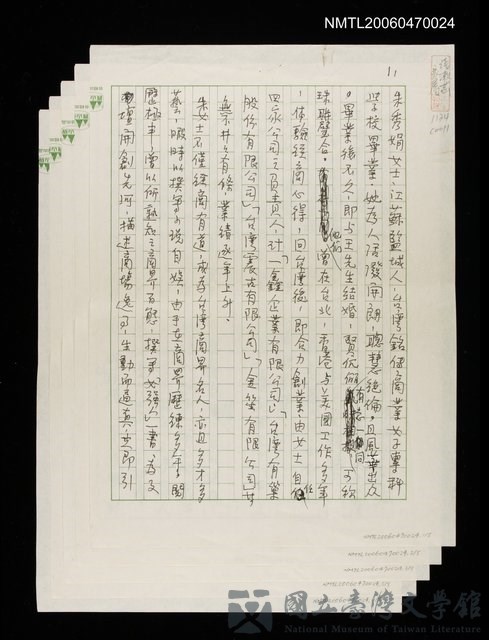 NMTL20060470024
朱秀娟女士，江蘇鹽城人，台灣銘傳商業女子專科
學校畢業。她為人活潑開朗，聰慧絕倫，且風華出眾
。畢業後不久，即與王先生結婚，賢伉儷 一同 可稱
珠聯璧合。 曾在台北，香港與美國工作多年
，体驗經商心得，回台灣後，即合力創業，由女士自任
四家公司之負責人，計「一鑫企業有限公司」「台灣有巢
股份有限公司」「台灣震古有限公司」「金笙有限公司」其
無不井井有條，業績逐年上升。
朱女士不僅經商有道，成為台灣商界名人，亦且多才多
藝，暇時以撰寫小說自娛，由于在商界歷練多年，閱
歷極丰，曾以所熟知之商界百態，撰寫「女強人」一書，為文
壇開創先河，描述商場逸事，生動而逼真，立即引
國立臺灣文學館
National Museum of Taiwan Literature